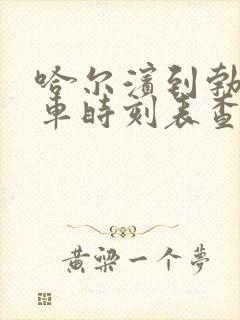 哈尔滨到勃
车时刻表查
黄梁一个梦